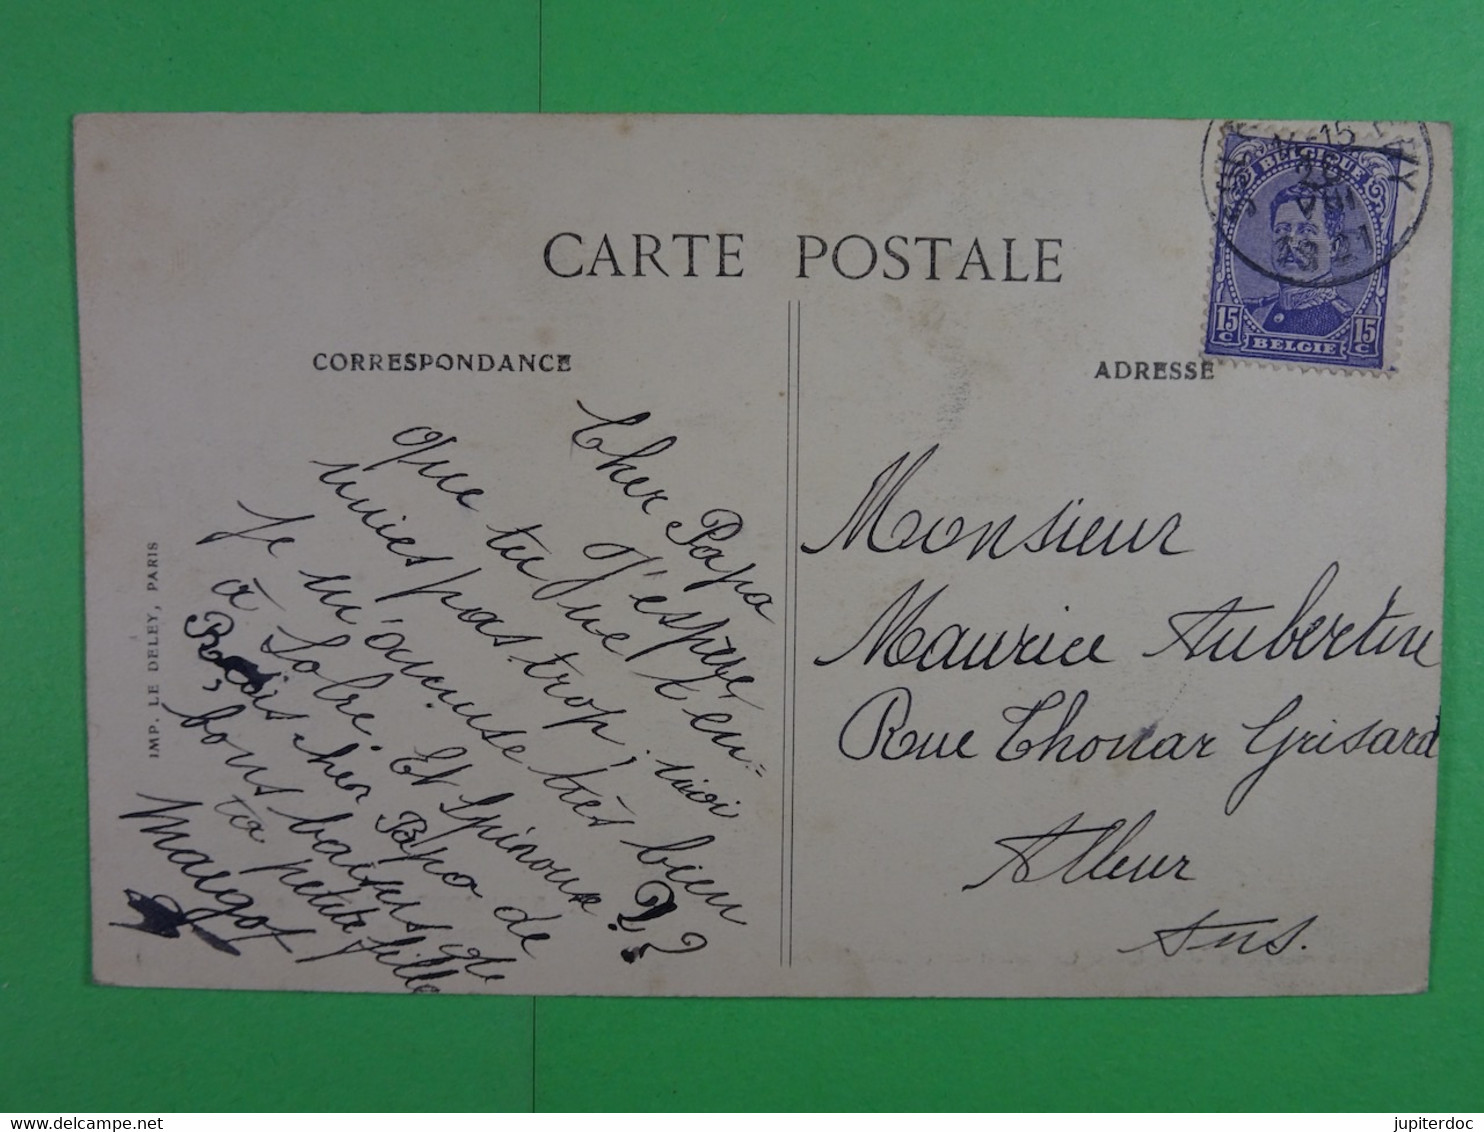 CARTE POSTALE
CORRESPONDANCE
ADRESSE
BELGIQUE
15 c
15 c
BELGIE
14-15
26
VIII
1921
Cher Papa
J'espère
que tu ne t'en=
nuies pas trop, moi
je m'amuse très bien
à Sobre. Et Spinoux ??
Reçois cher Papa de
bons baisers de
ta petite fille
Margot
Monsieur
Maurice Aubertin
Rue Thonar Grisard
Alleur
Ans.
IMP. LE DELEY, PARIS
jupiterdoc